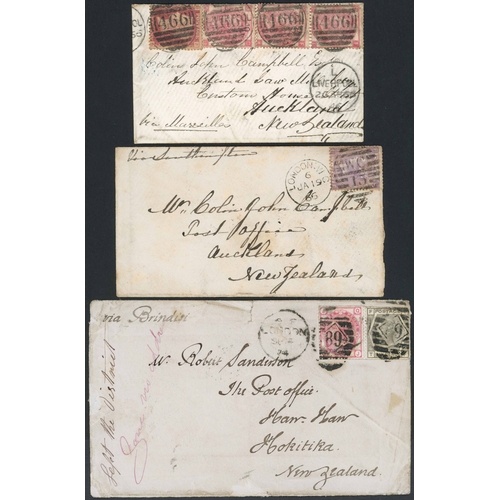 466 466 466 466
Colin John Campbell Esq
Auckland Saw Mills
Custom House
Auckland
New Zealand
via Marseilles
LIVERPOOL
via Southampton
LONDON
6
JA 19
WC
13
Mr. Colin John Campbell
Post Office
Auckland
New Zealand
via Brindisi
LONDON
89
Mr. Robert Sanderson
The Post Office
Haw-Haw
Hokitika
New Zealand